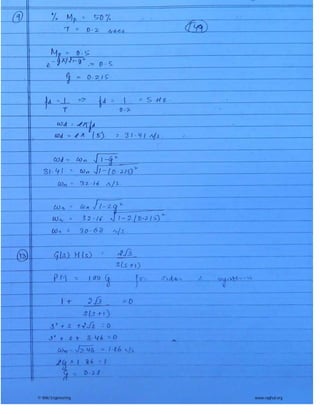 (9) % Mp = 50%
T = 0.2 secs
Mp = 0.5
e^-ξπ/√1-ξ² = 0.5
ξ = 0.215
fd = 1/T ⇒ fd = 1/0.2 = 5 Hz
ωd = 2πfd
ωd = 2π (5) = 31.41 r/s
ωd = ωn √1-ξ²
31.41 = ωn √1-(0.215)²
ωn = 32.16 r/s
ωr = ωn √1-2ξ²
ωr = 32.16 √1-2(0.215)²
ωr = 30.63 r/s
G(s) H(s) = 2√3/s(s+1)
PM = 100 ξ for order 2 system
1+ 2√3/s(s+1) =0
s² + s + 2√3 =0
s² + s + 3.46 =0
ωn = √3.46 = 1.86 r/s
© Wiki Engineering www.raghul.org